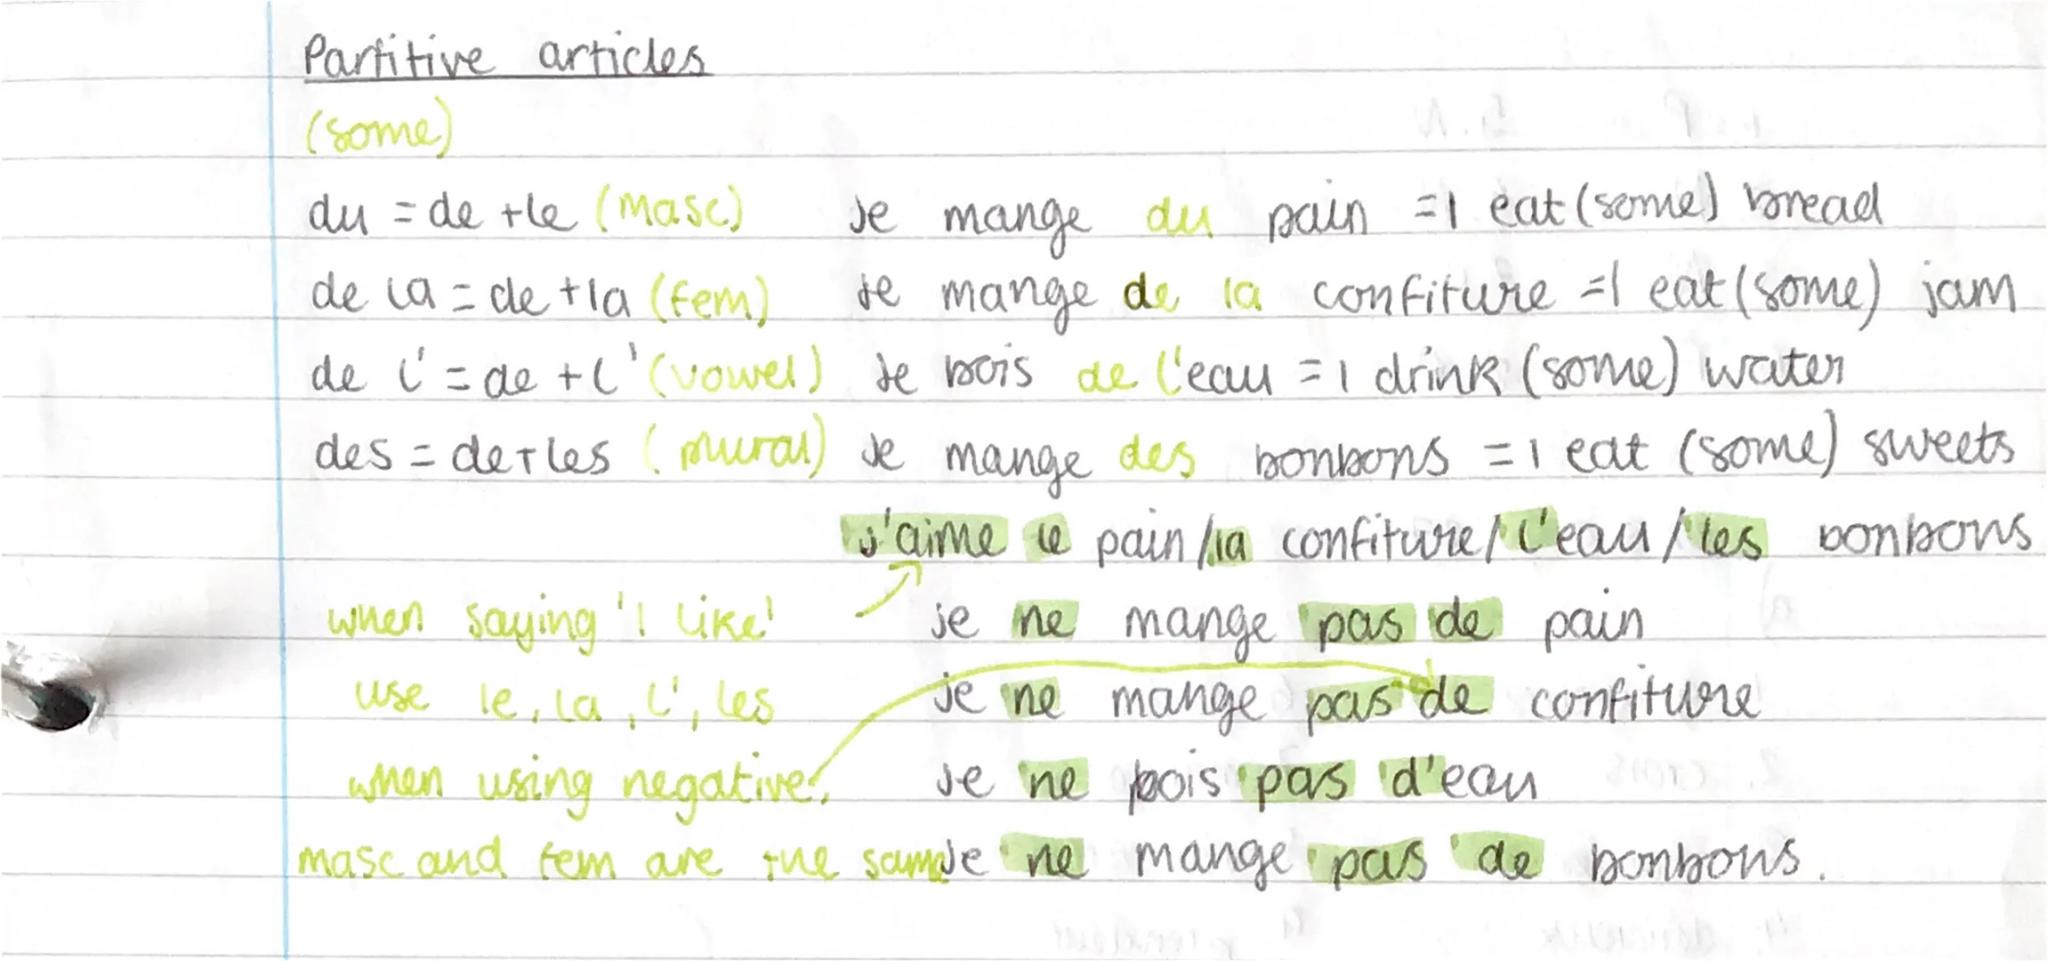 Partitive articles
(some)
du = de + le (masc) Je mange du pain = I eat (some) bread
de la = de + la (fem) Je mange de la confiture = I eat (some) jam
de l' = de + l' (vowel) Je bois de l'eau = I drink (some) water
des = de + les (plural) Je mange des bonbons = I eat (some) sweets
J'aime le pain / la confiture / l'eau / les bonbons
when saying 'I like' je ne mange pas de pain
use le, la, l', les je ne mange pas de confiture
when using negative, je ne bois pas d'eau
masc and fem are the same Je ne mange pas de bonbons.